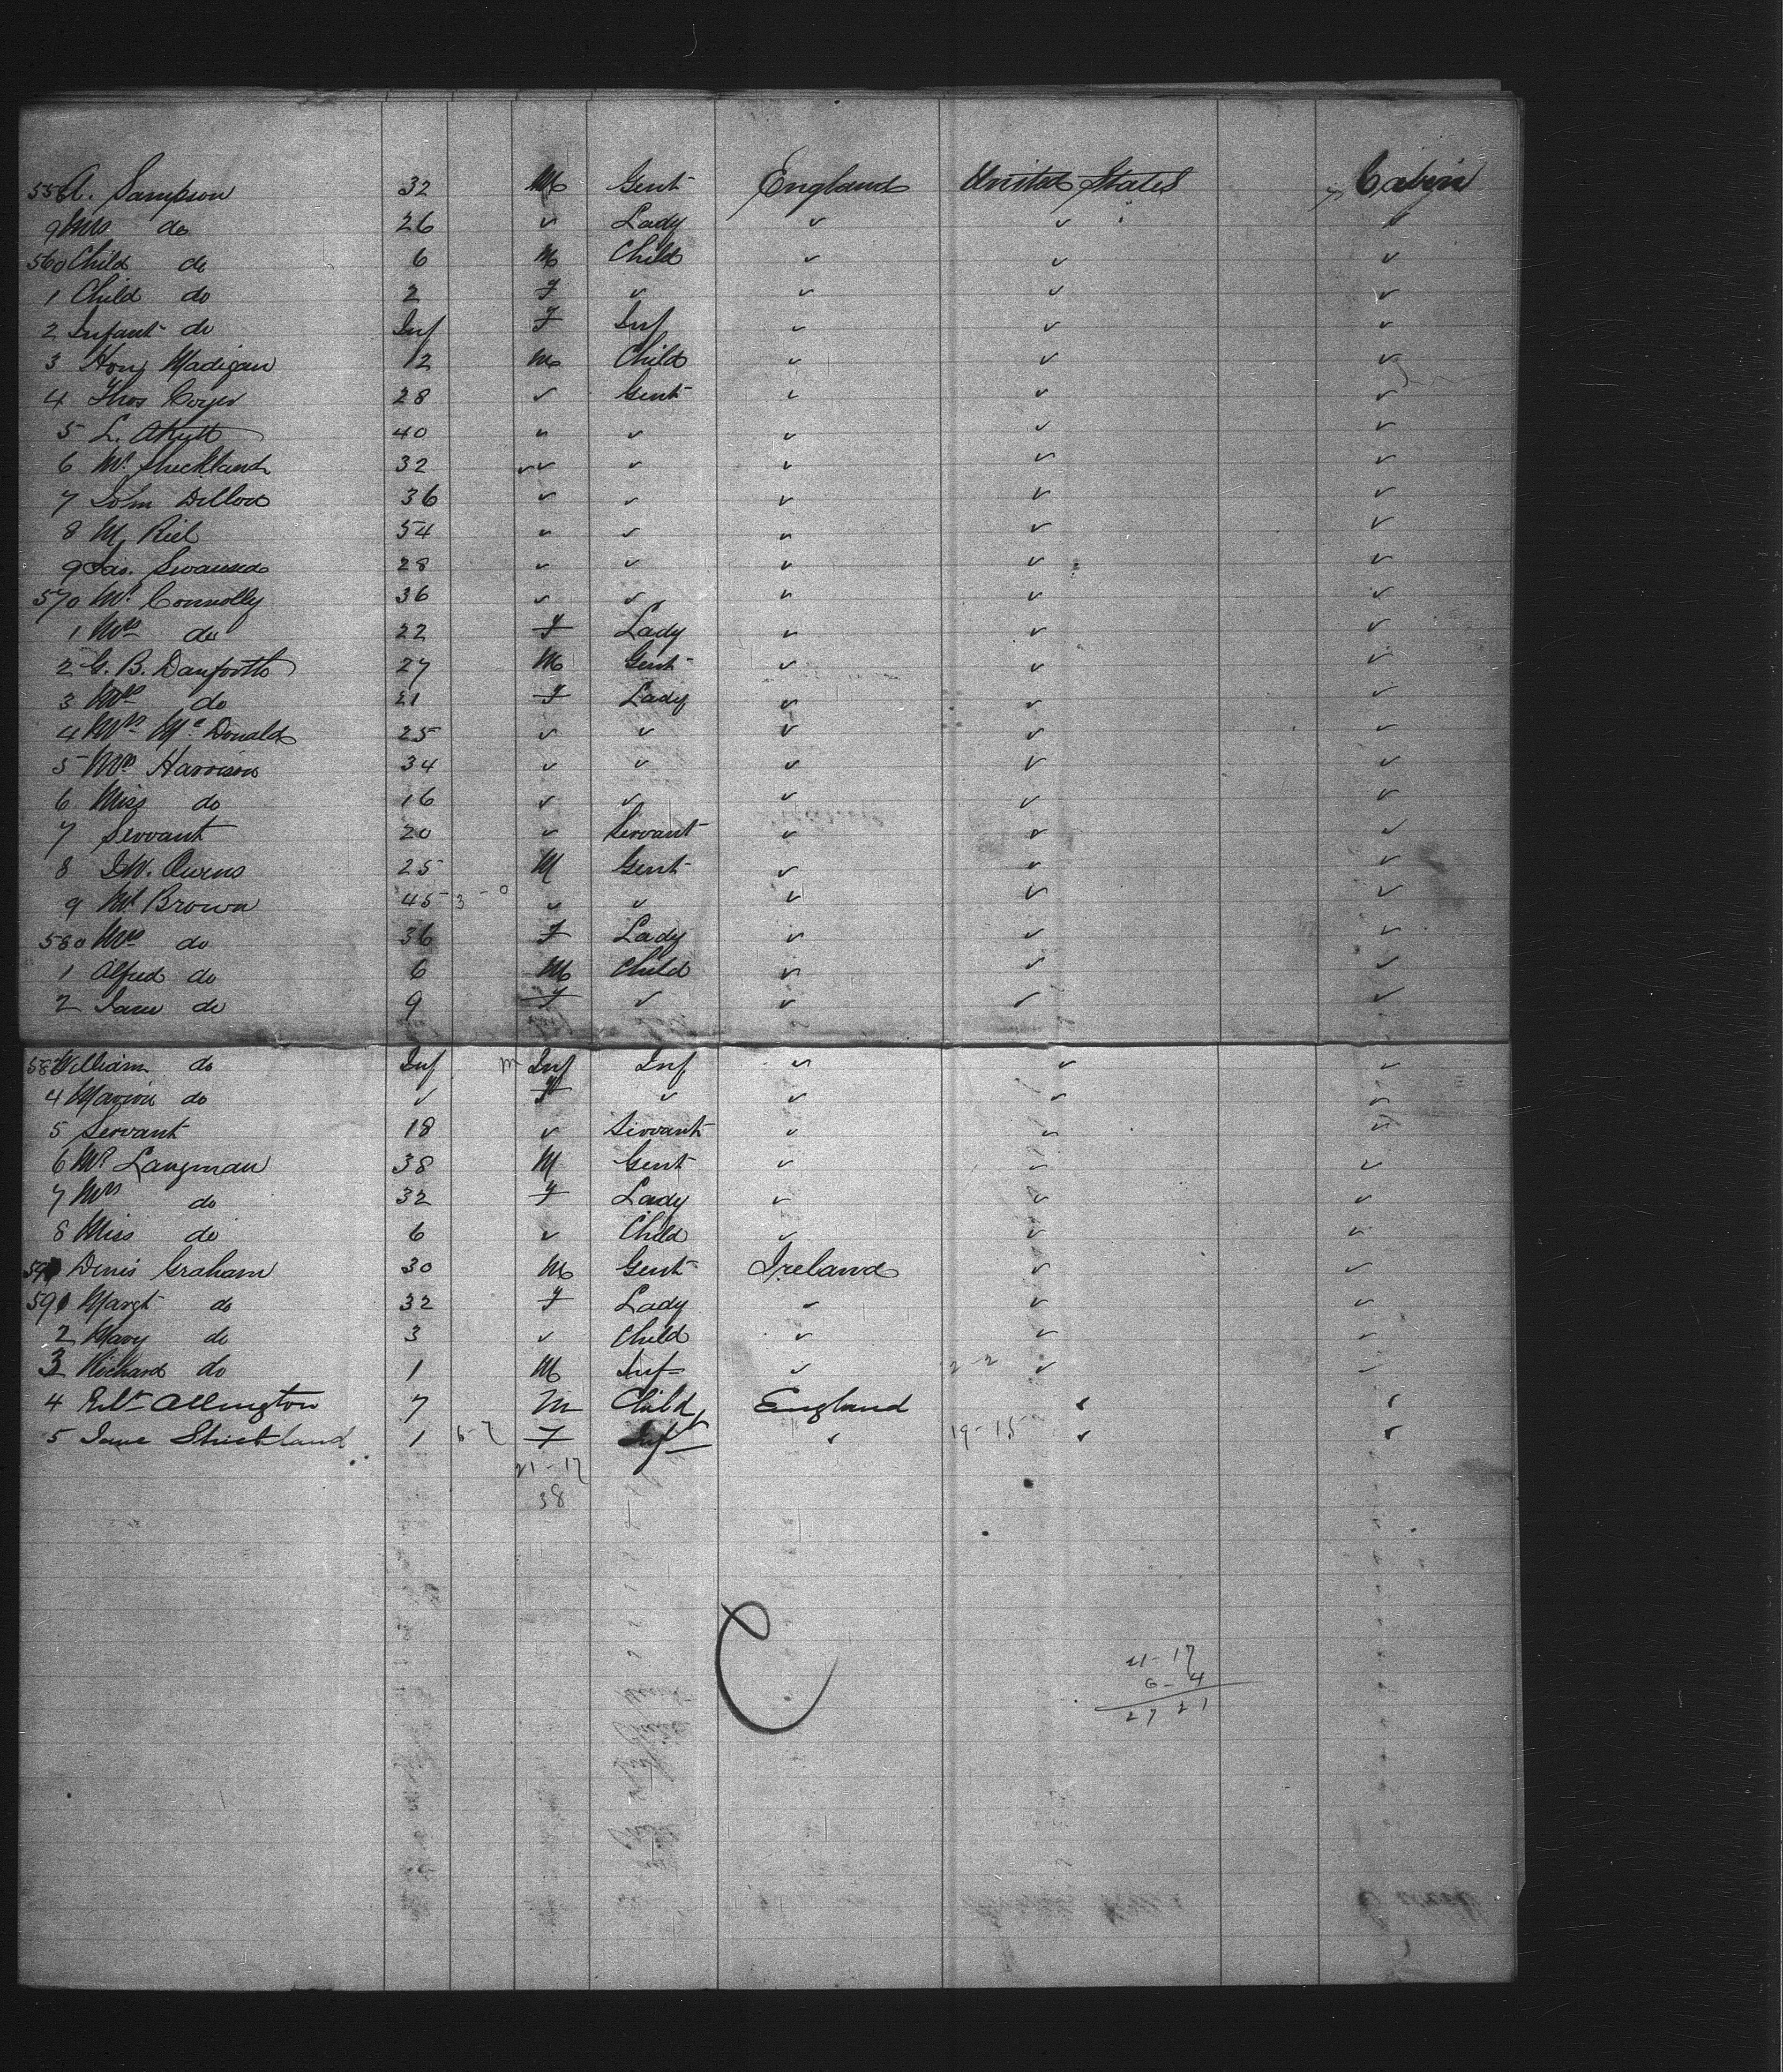 558 A. Sampson 32 M Gent England United States Cabin
9 Mrs do 26 ✓ Lady ✓ ✓ ✓
560 Child do 6 M Child ✓ ✓ ✓
1 Child do 2 F ✓ ✓ ✓ ✓
2 Infant do Inf F Inf ✓ ✓ ✓
3 Hony Madigan 12 M Child ✓ ✓ ✓
4 Thos 28 ✓ Gent ✓ ✓ ✓
5 L. 40 ✓ ✓ ✓ ✓ ✓
6 Mr 32 ✓✓ ✓ ✓ ✓ ✓
7 John Dillon 36 ✓ ✓ ✓ ✓ ✓
8 M Riel 54 ✓ ✓ ✓ ✓ ✓
9 Jas. 28 ✓ ✓ ✓ ✓ ✓
570 Mr Connolly 36 ✓ ✓ ✓ ✓ ✓
1 Mrs do 22 F Lady ✓ ✓ ✓
2 G. B. Danforth 27 M Gent ✓ ✓ ✓
3 Mrs do 21 F Lady ✓ ✓ ✓
4 Mrs McDonald 25 ✓ ✓ ✓ ✓ ✓
5 Mrs Harrison 34 ✓ ✓ ✓ ✓ ✓
6 Miss do 16 ✓ ✓ ✓ ✓ ✓
7 Servant 20 ✓ Servant ✓ ✓ ✓
8 J.W. Owens 25 M Gent ✓ ✓ ✓
9 Mr Brown 45 3-0 ✓ ✓ ✓ ✓ ✓
580 Mrs do 36 F Lady ✓ ✓ ✓
1 Alfred do 6 M Child ✓ ✓ ✓
2 Jane do 9 F ✓ ✓ ✓ ✓
583 William do Inf m Inf Inf ✓ ✓ ✓
4 Marion do ✓ F ✓ ✓ ✓ ✓
5 Servant 18 ✓ Servant ✓ ✓ ✓
6 Mr Langman 38 M Gent ✓ ✓ ✓
7 Mrs do 32 F Lady ✓ ✓ ✓
8 Miss do 6 ✓ Child ✓ ✓ ✓
Denis Graham 30 M Gent Ireland ✓ ✓
591 Margt do 32 F Lady ✓ ✓ ✓
2 Mary do 3 ✓ Child ✓ ✓ ✓
3 Richard do 1 M Inf ✓ 2-2 ✓ ✓
4 Robt Allington 7 M Child England ✓ ✓
5 Jane Strickland 1 6-7 F Inft ✓ 19-15 ✓ ✓
21-17
38
21-17
6-4
27 21